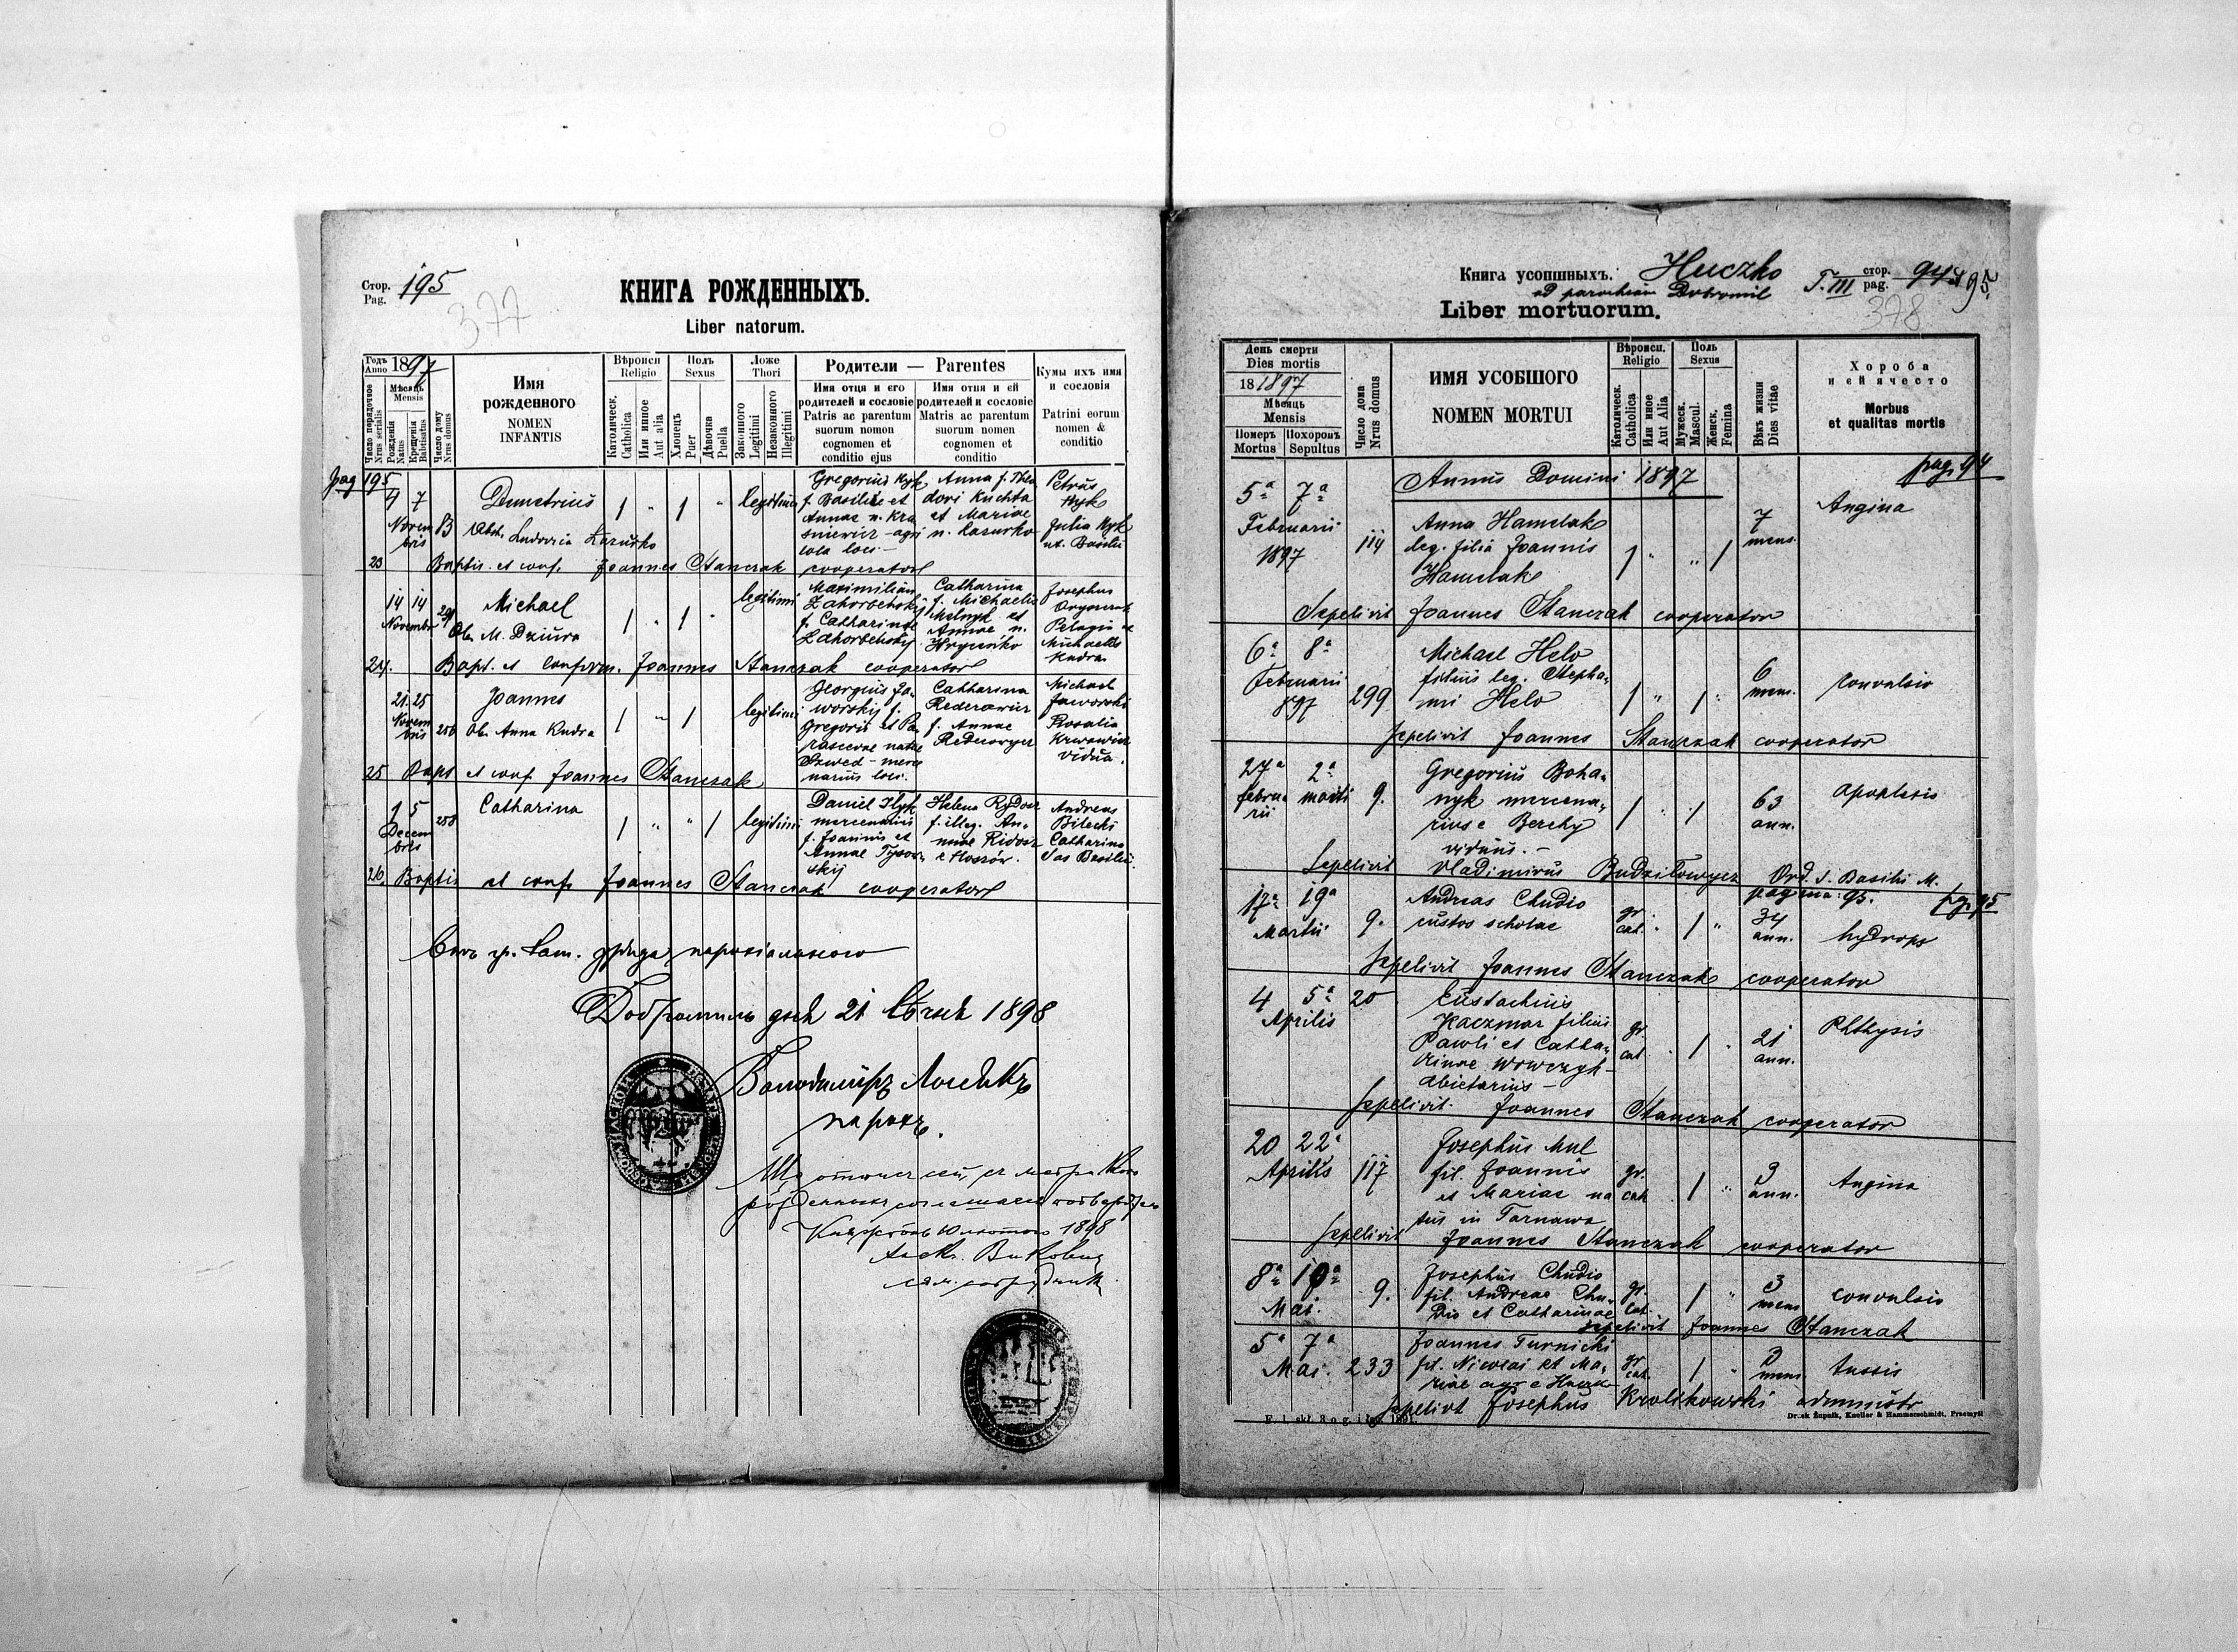 Стор.
Pag. 195
377
КНИГА РОЖДЕННЫХЪ.
Liber natorum.
Годъ
Anno 1897
Мѣсяць
Mensis
Число порядочное
Nrus serialis
Рожденія
Natus
Крещенія
Babtisatus
Число дому
Nrus domus
Имя
рожденного
NOMEN
INFANTIS
Вѣроисп
Religio
Католическ.
Catholica
Или иное
Aut alia
Полъ
Sexus
Хлопецъ
Puer
Дѣвочка
Puella
Ложе
Thori
Законного
Legitimi
Незаконного
Illegitimi
Родители — Parentes
Имя отця и его
родителей и сословіе
Patris ac parentum
suorum nomon
cognomen et
conditio ejus
Имя отця и ей
родителей и сословіе
Matris ac parentum
suorum nomen
cognomen et
conditio
Кумы ихъ имя
и сословія
Patrini eorum
nomen &
conditio
pag 195
4 7
Novem
bris
83
Demetrius
Obst. Ludovica Lazurko
1 " 1 "
legitimi
Gregorius Hyk
f. Basilii et
Annae n. Kra
sniewicz agri
cola loci. —
Anna f. Theo
dori Kuchta
et Mariae
n. Lazurko
Petrus
Hyk
Julia Hyk
ux. Basilii
23 Baptis. et conf. Joannes Stanczak cooperator
14 14
Novembr
291
Michael
Ob. M. Dziura
1 " 1 "
legitimi
Maximilian
Zahorbenskij
f. Catharinae
Zahorbenskij
Catharina
f. Michaelis
Melnyk et
Annae n.
Hrycunko
Josephus
Pelagia
Michaelis
Kudra
24. Bapt. et Confirm. Joannes Stanczak cooperator
21. 25
Novem
bris
256
Joannes
Ob. Anna Kudra
1 " 1
legitimi
Georgius Ja-
worskij f.
Gregorii et Pa
rascevae natae
Szwed - merce
narius loci.
Catharina
Rederowicz
f. Annae
Rederowycz
Michael
Jaworski
Rosalia
vidua.
25 Bapt et conf Joannes Stanczak
1 5
Decem
bris
258
Catharina
1 " " 1
legitimi
Daniel Hyk
mercenarius
f. Joannis et
Annae Tysow
skij
Helena Rydosz
f. illeg. An-
nae Ridosz
e Hoszów.
Andreas
Bilecki
Catharina
Sas Basilii
26. Baptis et conf Joannes Stanczak cooperator
Отъ гр. кат. уряда парохіального
Добромиль дня 21 Сѣчня 1898
Володимиръ
парохъ.
1898
Liber mortuorum.
Книга усопшныхъ. Huczko
ad parochiam Dobromil
Т. III стор.
pag. 94 et 95
378
День смерти
Dies mortis
18 1897
Мѣсяць
Mensis
Померъ
Mortus
Похоронъ
Sepultus
Число дома
Nrus domus
ИМЯ УСОБШОГО
NOMEN MORTUI
Вѣроисп.
Religio
Католическ.
Catholica
Или иное
Aut Alia
Поль
Sexus
Мужеск.
Mascul.
Женск,
Femina
Вѣкъ жизни
Dies vitae
Хороба
и ей ячесто
Morbus
et qualitas mortis
Annus Domini 1897
pag. 94
5a 7a
Februarii
1897
114
Anna Hamelak
leg. filia Joannis
Hamelak
1 " " 1
7
mens.
Angina
Sepelivit Joannes Stanczak cooperator
6a 8a
Februarii
897
299
Michael Helo
filius leg. Stepha-
ni Helo
1 " 1 "
6
mens.
Convulsio
Sepelivit Joannes Stanczak cooperator
27a 2a
februa martii
rii
9.
Gregorius Boha-
nyk mercena-
rius e Berehy
viduus. —
1 " 1
63
ann.
Apoplexis
Sepelivit Vladimirus Budzilowycz Ord. S. Basilii M.
pagina: 95. pag. 95
17a 19a
Martii
9.
Andreas Chudio
custos scholae
gr.
cat.
1 "
34
ann.
hydrops
Sepelivit Joannes Stanczak cooperator
4 5a
Aprilis
20
Eustachius
Kaczmar filius
Pawli et Catha-
rinae Wowczyk
abietarius —
gr.
cat.
1 "
21
ann.
Phthysis
Sepelivit Joannes Stanczak cooperator
20 22a
Aprilis
117
Josephus Mul
fil. Joannis
et Mariae na
tus in Tarnawa
gr.
cat
1 "
3
ann.
Angina
Sepelivit Joannes Stanczak cooperator
8a 10a
Mai.
9.
Josephus Chudio
fil. Andreae Chu-
dio et Catharinae
gr.
cat.
1 "
3
mens
convulsio
sepelivit Joannes Stanczak
5a 7a
Mai.
233
Joannes Turnicki
fil. Nicolai et Ma-
riae agr e
gr
cat.
1 "
3
mens
tussis
Sepelivit Josephus Krolikowski administr
Dr. ek Żupnik, Knoller & Hammerschmidt, Przemyśl